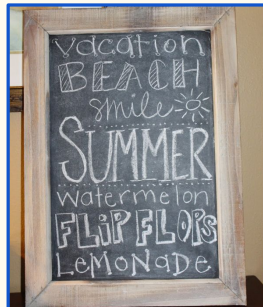 vacation
BEACH
smile
SUMMER
Watermelon
FLiP FLOPS
LeMoNaDe